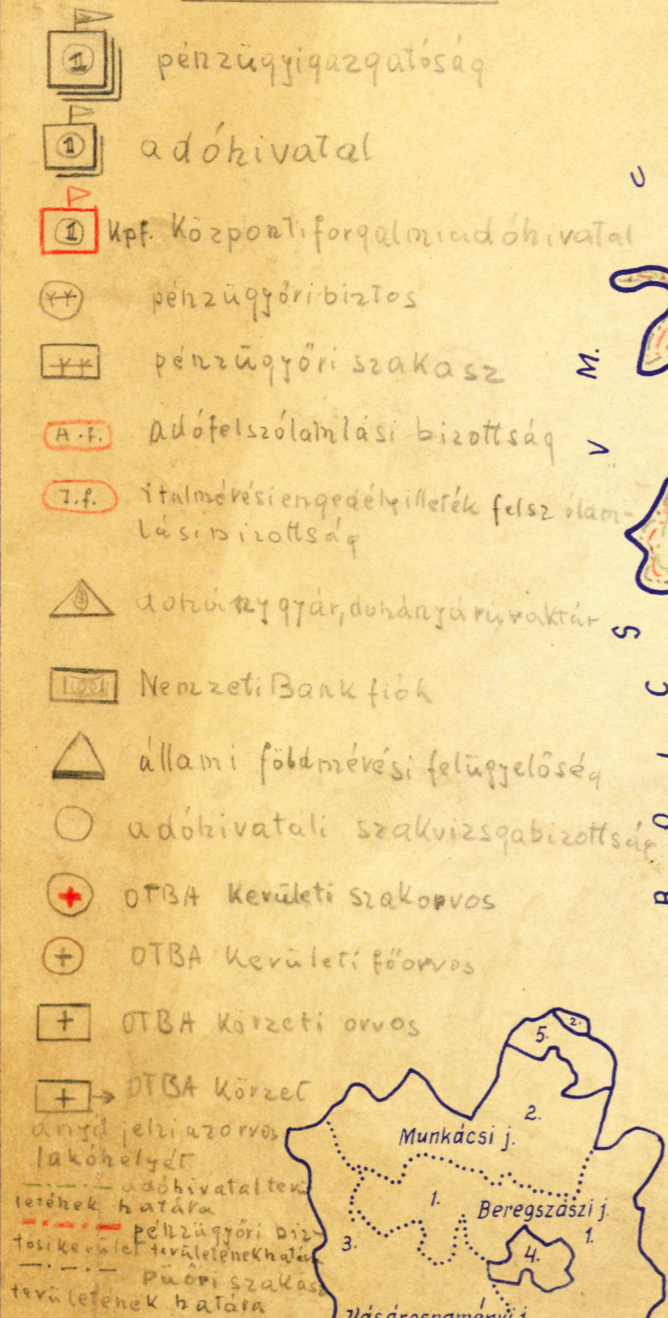 1 pénzügyigazgatóság
1 adóhivatal
1 Kpf. Központi forgalmiadóhivatal
pénzügyőri biztos
pénzügyőri szakasz
A.f. adófelszólamlási bizottság
I.f. italmérési engedély illeték felszólam-
lási bizottság
dohánygyár, dohányáruraktár
Nemzeti Bank fiók
állami földmérési felügyelőség
adóhivatali szakvizsgabizottság
OTBA Kerületi szakorvos
OTBA Kerületi főorvos
OTBA Körzeti orvos
OTBA Körzet
a nyíl jelzi az orvos
lakóhelyét
adóhivatal terü
letének határa
pénzügyőri biz-
tosi kerület területének határa
püőri szakasz
területének határa
U
M.
V
S
C
I
O
B
5.
2.
2.
Munkácsi j.
1.
Beregszászi j.
1.
3.
4.
Vásárosnaményi j.